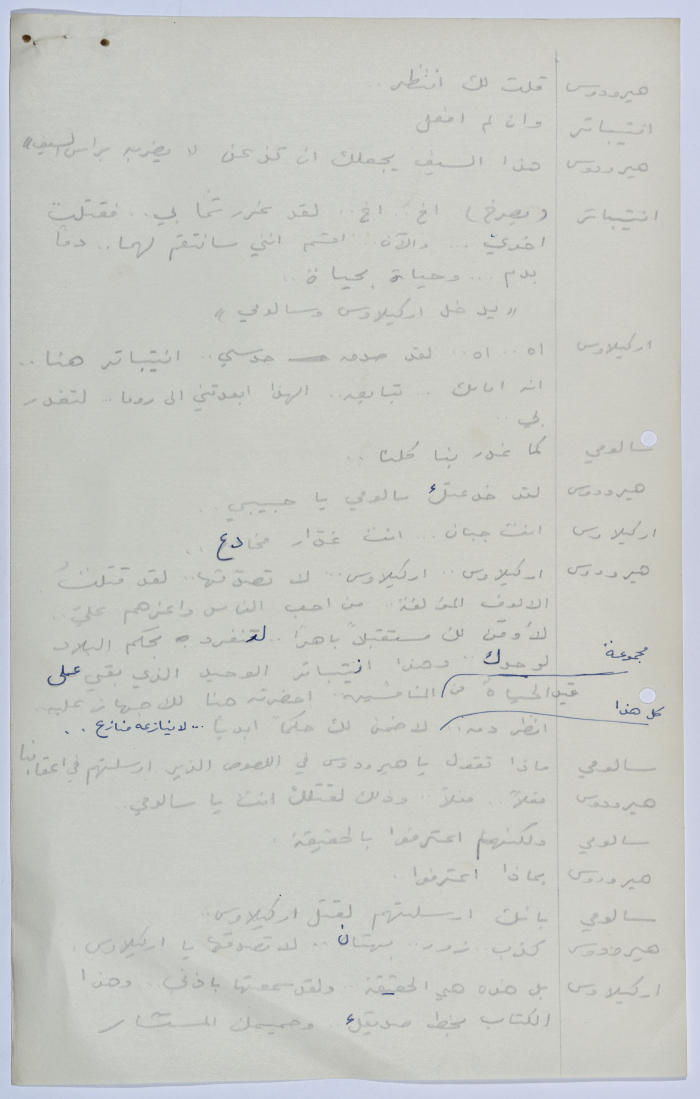 هيرودوس قلت لك انتظر .
انتيباتر وان لم افعل
هيرودوس هذا السيف يجعلك ان تذعن لا يضربه براس السيف»
انتيباتر (يصرخ) اخ .. اخ .. لقد غرر بي .. فقتلت
اخوي ... والآن .. اقسم انني سانتقم لهما .. دماً
بدم ... وحياة بحياة ..
« يدخل اركيلاوس وسالومي »
اركيلاوس اه .. اه .. لقد صدق حدسي .. انتيباتر هنا ..
انه امامك ... الهذا ابعدتني الى روما .. لتغدر
بي ..
سالومي كما غدر بنا كلنا ..
هيرودوس لقد خدعتك سالومي يا حبيبي ..
اركيلاوس انت جبان ... انت غدّار مخادع ..
هيرودوس اركيلاوس .. اركيلاوس .. لا تصدقها .. لقد قتلتُ
الالوف المؤلفة .. من احب الناس واعزهم عليّ ..
لأؤمن لك مستقبلاً باهراً .. لتنفرد بحكم البلاد
لوحدك .. وهذا انتيباتر الوحيد الذي بقي على
مجموعة
قيد الحياة من المنافسين .. احضرته هنا للاجهاز عليه ..
كل هذا
انظر دمه .. لاضمن لك حكماً ابدياً ... لا ينازعه منازع ..
سالومي ماذا تقول يا هيرودوس في اللصوص الذين ارسلتهم في اعقابنا
هيرودوس فعلاً .. فعلاً .. وذلك لقتلك انت يا سالومي ..
سالومي ولكنهم اعترفوا بالحقيقة .
هيرودوس بماذا اعترفوا .
سالومي بانك ارسلتهم لقتل اركيلاوس ..
هيرودوس كذب .. زور .. بهتان .. لا تصدقها يا اركيلاوس
اركيلاوس بل هذه هي الحقيقة .. ولقد سمعتها باذني .. وهذا
الكتاب بخط صديقك .. وحميمك المستشار